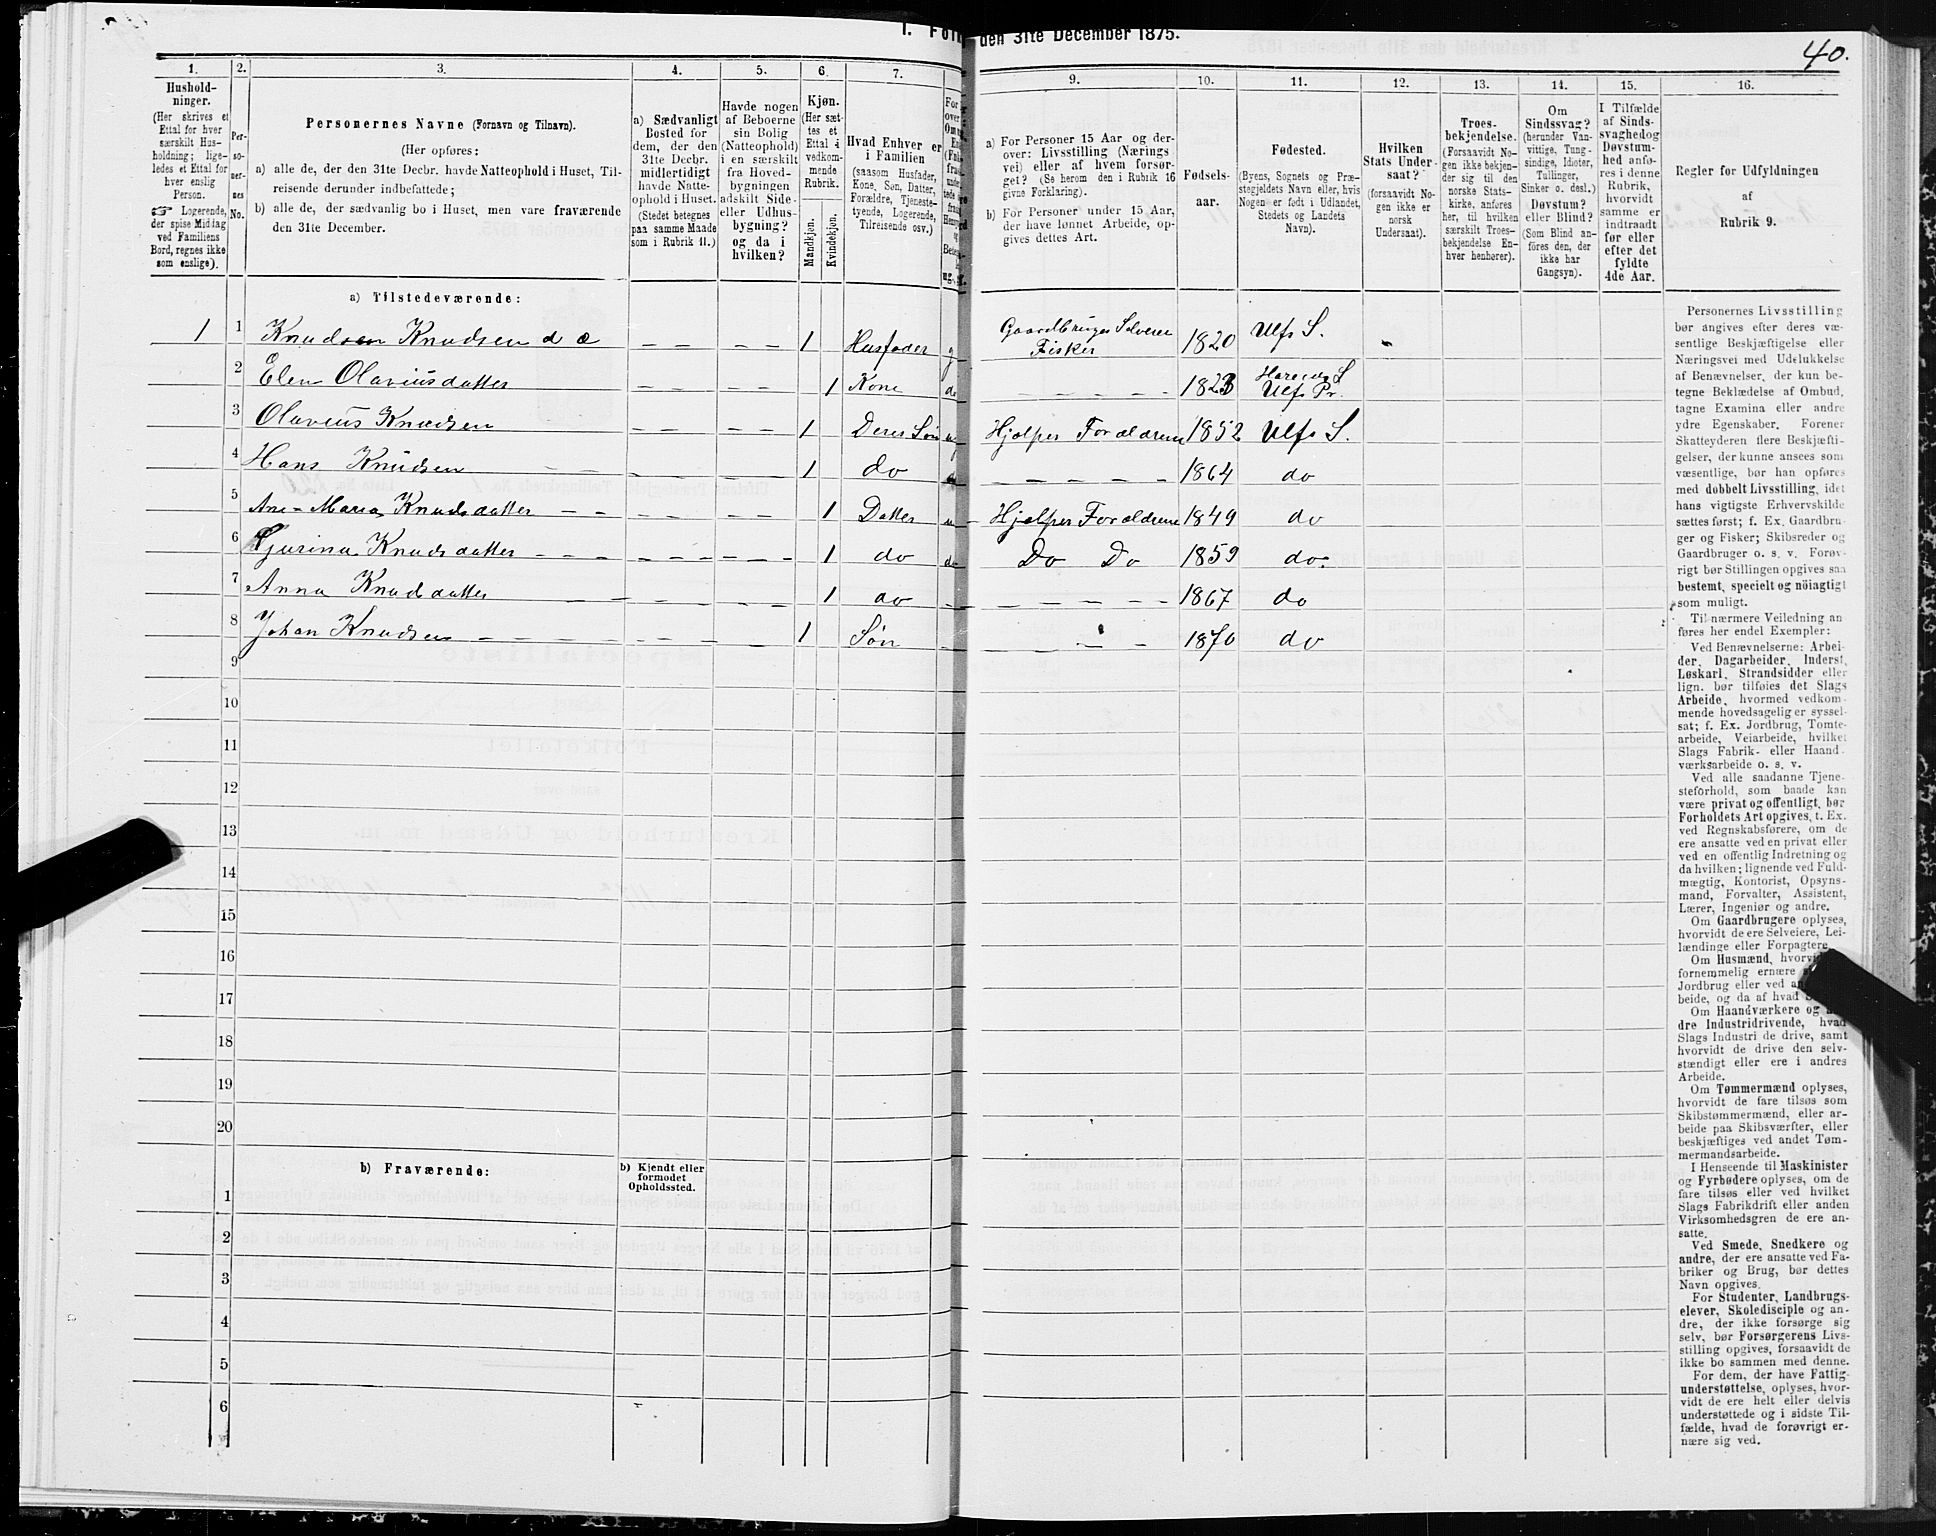 40.
I. Folk
den 31te December 1875.
1.
2.
3.
4.
5.
6.
7.
9.
10.
11.
12.
13.
14.
15.
16.
Hushold-
ninger.
(Her skrives et
Ettal for hver
særskilt Hus-
holdning; lige-
ledes et Ettal for
hver enslig
Person.
☞ Logerende,
der spise Middag
ved Familiens
Bord, regnes ikke
som enslige).
Per-
so-
ner-
nes
No.
Personernes Navne (Fornavn og Tilnavn).
(Her opføres:
a) alle de, der den 31te Decbr. havde Natteophold i Huset, Til-
reisende derunder indbefattede;
b) alle de, der sædvanlig bo i Huset, men vare fraværende
den 31te December.
a) Sædvanligt
Bosted for
dem, der den
31te Decbr.
midlertidigt
havde Natte-
ophold i Huset.
(Stedet betegnes
paa samme Maade
som i Rubrik 11.)
Havde nogen
af Beboerne
sin Bolig
(Natteophold)
i en særskilt
fra Hoved-
bygningen
adskilt Side-
eller Udhus-
bygning?
og da i
hvilken?
Kjøn.
(Her sæt-
tes et
Ettal i
vedkom-
mende
Rubrik.
Mandkjøn.
Kvindekjøn.
Hvad Enhver er
i Familien
(saasom Husfader,
Kone, Søn, Datter,
Forældre, Tjeneste-
tyende, Logerende,
Tilreisende osv.)
a) For Personer 15 Aar og der-
over: Livsstilling (Nærings-
vei) eller af hvem forsør-
get? (Se herom den i Rubrik 16
givne Forklaring).
b) For Personer under 15 Aar,
der have lønnet Arbeide, op-
gives dettes Art.
Fødsels-
aar.
Fødested.
(Byens, Sognets og Præ-
stegjeldets Navn eller, hvis
Nogen er født i Udlandet,
Stedets og Landets
Navn).
Hvilken
Stats Under-
saat?
(forsaavidt No-
gen ikke er
norsk
Undersaat).
Troes-
bekjendelse.
(Forsaavidt No-
gen ikke bekjen-
der sig til den
norske Stats-
kirke, anføres
her, til hvilken
særskilt Troes-
bekjendelse En-
hver henhører).
Om
Sindssvag?
(herunder Van-
vittige, Tung-
sindige, Idioter,
Tullinger,
Sinker o. desl.)
Døvstum?
eller Blind?
(Som Blind an-
føres den, der
ikke har
Gangsyn).
I Tilfælde
af Sinds-
svaghedog
Døvstum-
hed anfø-
res i denne
Rubrik,
hvorvidt
samme er
indtraadt
før eller
efter det
fyldte
4de Aar.
Regler for Udfyldningen
af
Rubrik 9.
a) Tilstedeværende:
1 1 Knudsen Knudsen d æ — — — — 1 Husfader g Gaardbruger Selveier Fisker 1820 Ulfs S.
2 Elen Olaviusdatter — — — — 1 Kone do — — — — 1823 Ulfs Pr.
3 Olavius Knudsen — — — — 1 Deres Søn u Hjælper Forældrene 1852 Ulfs S.
4 Hans Knudsen — — — — 1 do — — — — 1864 do
5 Ane-Maria Knudsdatter — — 1 Datter u Hjælper Forældrene 1849 do
6 Gjurina Knudsdatter — — — 1 do do Do Do 1859 do.
7 Anna Knudsdatter — — — 1 do — — — — 1867 do
8 Johan Knudsen — — — 1 Søn — — — 1870 do
9
10
11
12
13
14
15
16
17
18
19
20
b) Fraværende:
b) Kjendt eller
formodet
Opholdssted.
1
2
3
4
5
6
Personernes Livsstilling
bør angives efter deres væ-
sentlige Beskjæftigelse eller
Næringsvei med Udelukkelse
af Benævnelser, der kun be-
tegne Beklædelse af Ombud,
tagne Examina eller andre
ydre Egenskaber. Forener
Skatteyderen flere Beskjæfti-
gelser, der kunne ansees som
væsentlige, bør han opføres
med dobbelt Livsstilling, idet
hans vigtigste Erhvervskilde
sættes først; f. Ex. Gaardbru-
ger og Fisker; Skibsreder og
Gaardbruger o. s. v. Forøv-
rigt bør Stillingen opgives saa
bestemt, specielt og nöiagtigt
som muligt.
Til nærmere Veiledning an-
føres her endel Exempler:
Ved Benævnelserne: Arbei-
der, Dagarbeider, Inderst,
Løskarl, Strandsidder eller
lign. bør tilføies det Slags
Arbeide, hvormed vedkom-
mende hovedsagelig er syssel-
sat; f. Ex. Jordbrug, Tomte-
arbeide, Veiarbeide, hvilket
Slags Fabrik- eller Haand-
værksarbeide o. s. v.
Ved alle saadanne Tjene-
steforhold, som baade kan
være privat og offentligt, bør
Forholdets Art opgives, f. Ex.
ved Regnskabsførere, om de
ere ansatte ved en privat eller
ved en offentlig Indretning og
da hvilken; lignende ved Fuld-
mægtig, Kontorist, Opsyns-
mand, Forvalter, Assistent,
Lærer, Ingeniør og andre.
Om Gaardbrugere oplyses,
hvorvidt de ere Selveiere, Lei-
lændinge eller Forpagtere.
Om Husmænd, hvorvidt
fornemmelig ernære
Jordbrug eller ved
beide, og da af hvad
Om Haandværkere og
dre Industridrivende, hvad
Slags Industri de drive, samt
hvorvidt de drive den selv-
stændigt eller ere i andres
Arbeide.
Om Tømmermænd oplyses,
hvorvidt de fare tilsøs som
Skibstømmermænd, eller ar-
beide paa Skibsværfter, eller
beskjæftiges ved andet Tøm-
mermandsarbeide.
I Henseende til Maskinister
og Fyrbødere oplyses, om de
fare tilsøs eller ved hvilket
Slags Fabrikdrift eller anden
Virksomhedsgren de ere an-
satte.
Ved Smede, Snedkere og
andre, der ere ansatte ved Fa-
briker og Brug, bør dettes
Navn opgives.
For Studenter, Landbrugs-
elever, Skoledisciple og an-
dre, der ikke forsørge sig
selv, bør Forsørgerens Livs-
stilling opgives, forsaavidt de
ikke bo sammen med denne.
For dem, der have Fattig-
understøttelse, oplyses, hvor-
vidt de ere helt eller delvis
understøttede og i sidste Til-
fælde, hvad de forøvrigt er-
nære sig ved.